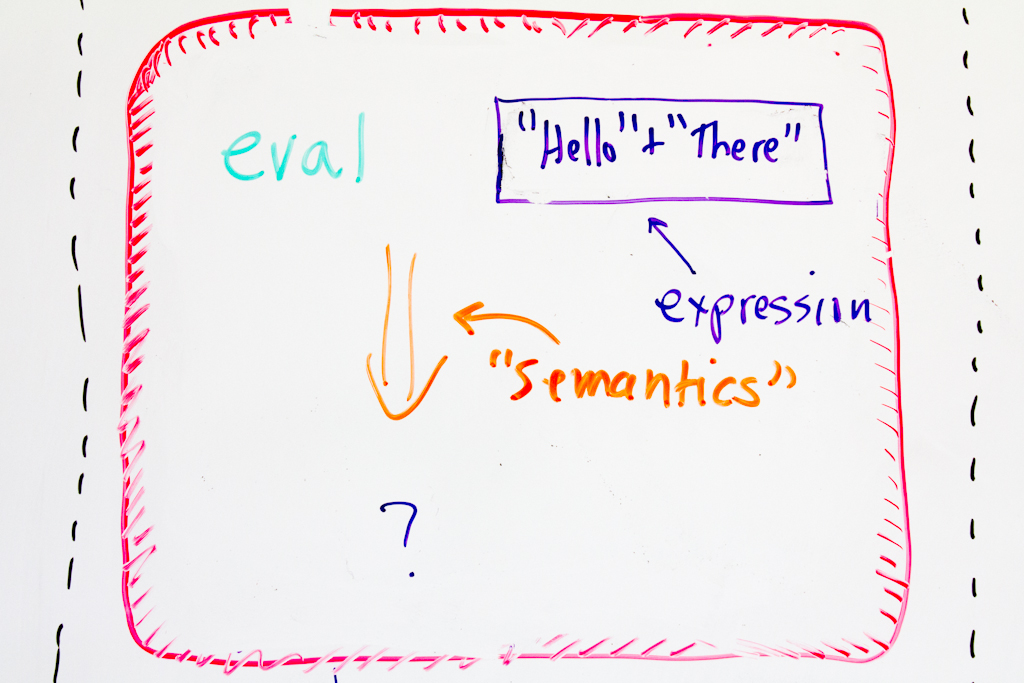 eval
"Hello"+"There"
expression
"Semantics"
?